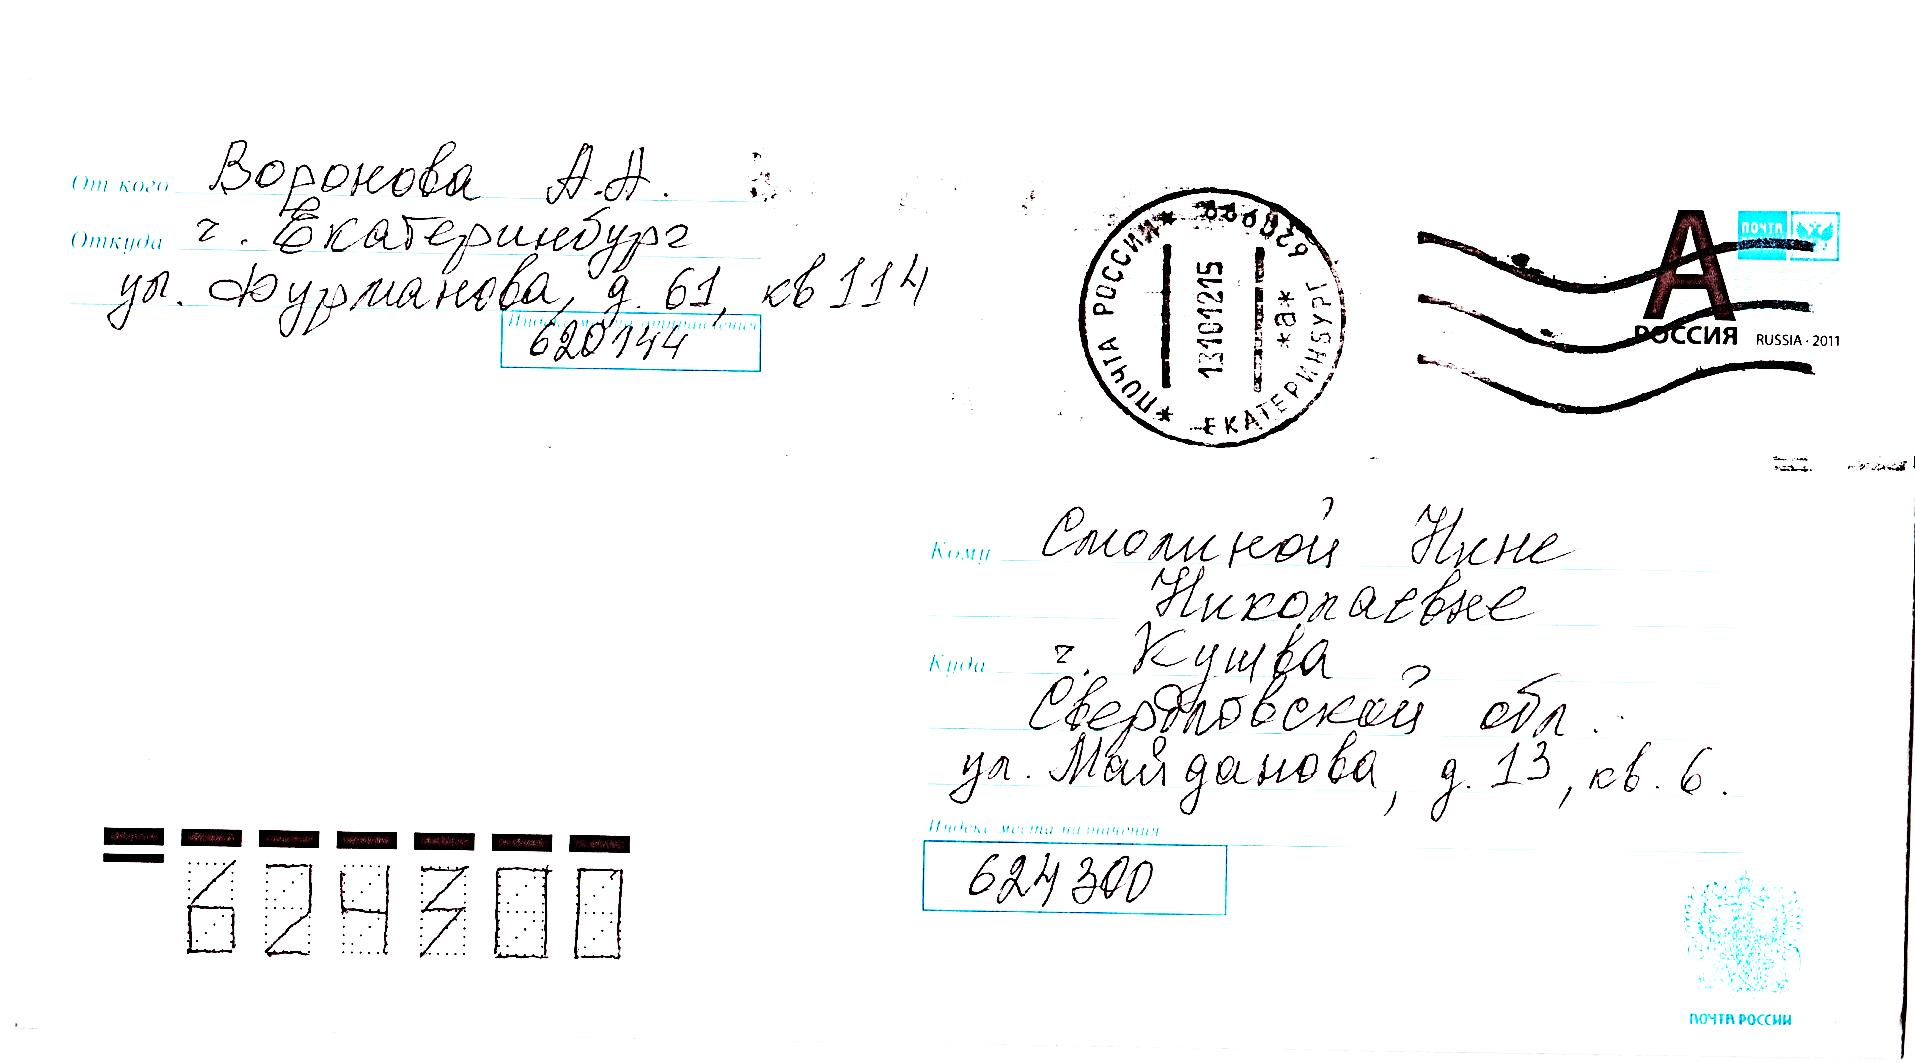 От кого Воронова А.А.
Откуда г. Екатеринбург
ул. Фурманова, д. 61, кв 114
Индекс места отправления
620144
* ПОЧТА РОССИИ *
13101215
*а*
ЕКАТЕРИНБУРГ
А
ПОЧТА
РОССИЯ
RUSSIA · 2011
Кому Смолиной Нине
Николаевне
Куда г. Кушва
Свердловской обл.
ул. Майданова, д. 13, кв. 6.
Индекс места назначения
624300
624300
ПОЧТА РОССИИ